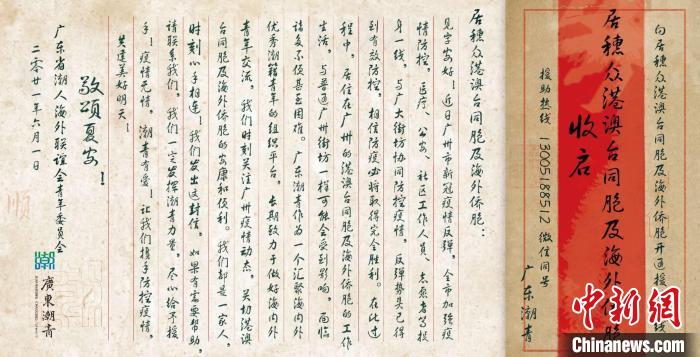 向居穗众港澳台同胞及海外侨胞开通援
居穗众港澳台同胞及海外侨胞
收启
援助热线 13005188512 微信同号
广东潮青
居穗众港澳台同胞及海外侨胞：
见字安好！近日广州市新冠疫情反弹，全市加强疫
情防控，医疗、公安、社区工作人员、志愿者等投
身一线，与广大街坊协同防控疫情，反弹势头已得
到有效防控，相信防疫必将取得完全胜利。在此过
程中，居住在广州的港澳台同胞及海外侨胞的工作
生活，与普通广州街坊一样可能会受到影响，面临
诸多不便甚至困难。广东潮青作为一个汇聚海内外
优秀潮籍青年的组织平台，长期致力于做好海内外
青年交流，我们时刻关注广州疫情动态，关切港澳
台同胞及海外侨胞的安康和便利。我们都是一家人，
时刻心手相连！我们发出这封信，如果有需要帮助，
请联系我们，我们一定发挥潮青力量，尽心给予援
手！疫情无情，潮青有爱！让我们携手防控疫情，
共建美好明天！
敬颂夏安！
广东省潮人海外联谊会青年委员会
二零二一年六月一日
顺
廣東潮青
中新网
Chinanews.com